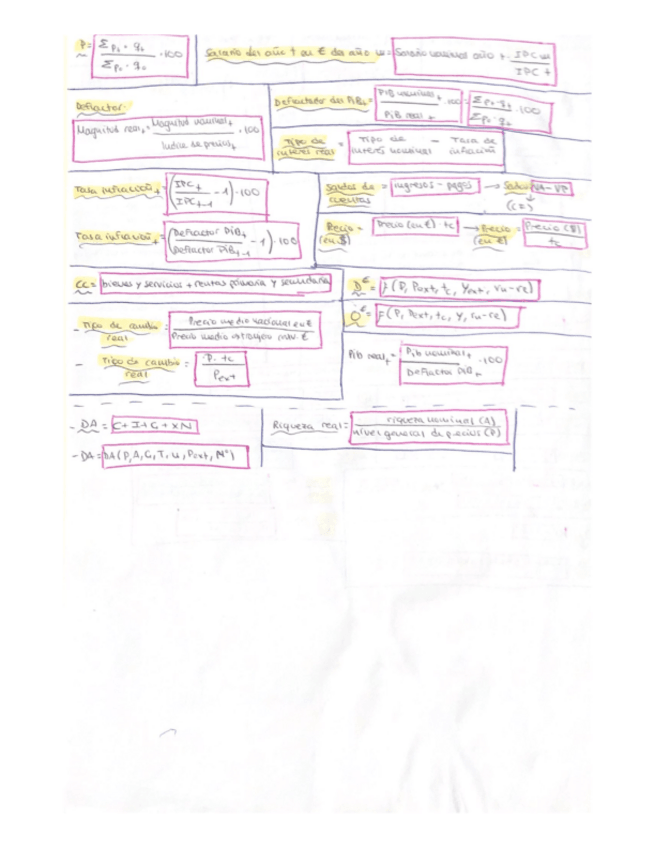 P = Σ Pt · qt / Σ Po · qo · 100
Salario del año t en € del año m = Salario nominal año t · IPC m / IPC t
Deflactor:
Magnitud real t = Magnitud nominal t / Indice de precios t · 100
Deflactor del PIB t = PIB nominal t / PIB real t · 100 = Σ Pt · qt / Σ Po · qt · 100
Tipo de interés real = Tipo de interés nominal − Tasa de inflación
Tasa inflación t = (IPC t / IPC t-1 − 1) · 100
Saldos de cuentas = ingresos − pagos → Saldo
(C=)
Tasa inflación t = (Deflactor PIB t / Deflactor PIB t-1 − 1) · 100
Precio (en $) = Precio (en €) · tc → Precio (en €) = Precio ($) / tc
CC = bienes y servicios + rentas primaria y secundaria
D€ = f (P, Pext, tc, Yext, rn-re)
O€ = f (P, Pext, tc, Y, rn-re)
- Tipo de cambio real = Precio medio nacional en € / Precio medio extranjero en €
- Tipo de cambio real = P · tc / Pext
Pib real t = Pib nominal t / Deflactor PIB t · 100
- DA = C + I + G + XN
Riqueza real = riqueza nominal (A) / nivel general de precios (P)
- DA = DA (P, A, G, T, u, Pext, N*)